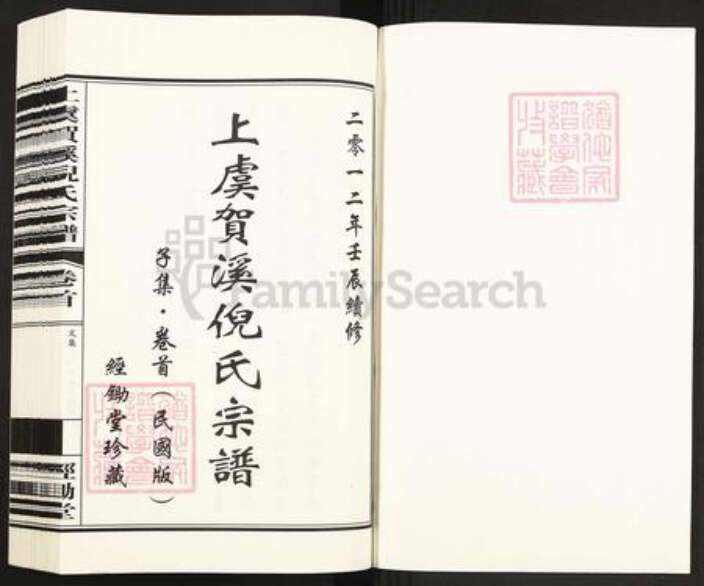 二零一二年壬辰續修
上虞賀溪倪氏宗譜
子集・卷首（民國版）
經鋤堂珍藏
上虞賀溪倪氏宗譜
卷首
文集
經鋤堂
FamilySearch